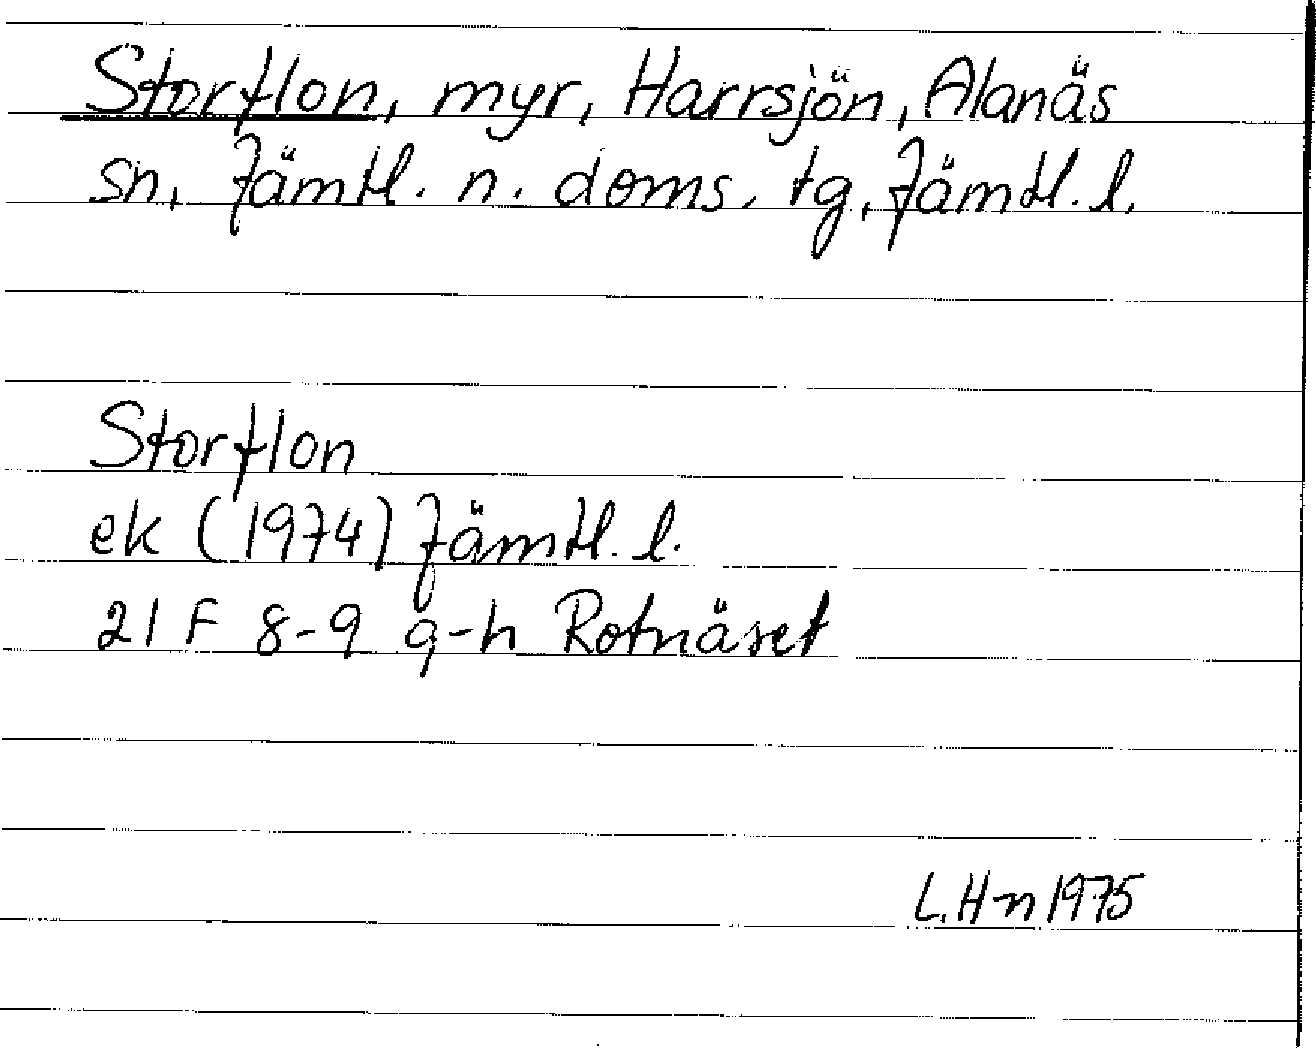 Storflon, myr, Harrsjön, Alanäs
sn, Jämtl. n. doms. tg, Jämtl. l.
Storflon
ek (1974) Jämtl. l.
21 F 8-9 g-h Rotnäset
L.H-n 1975